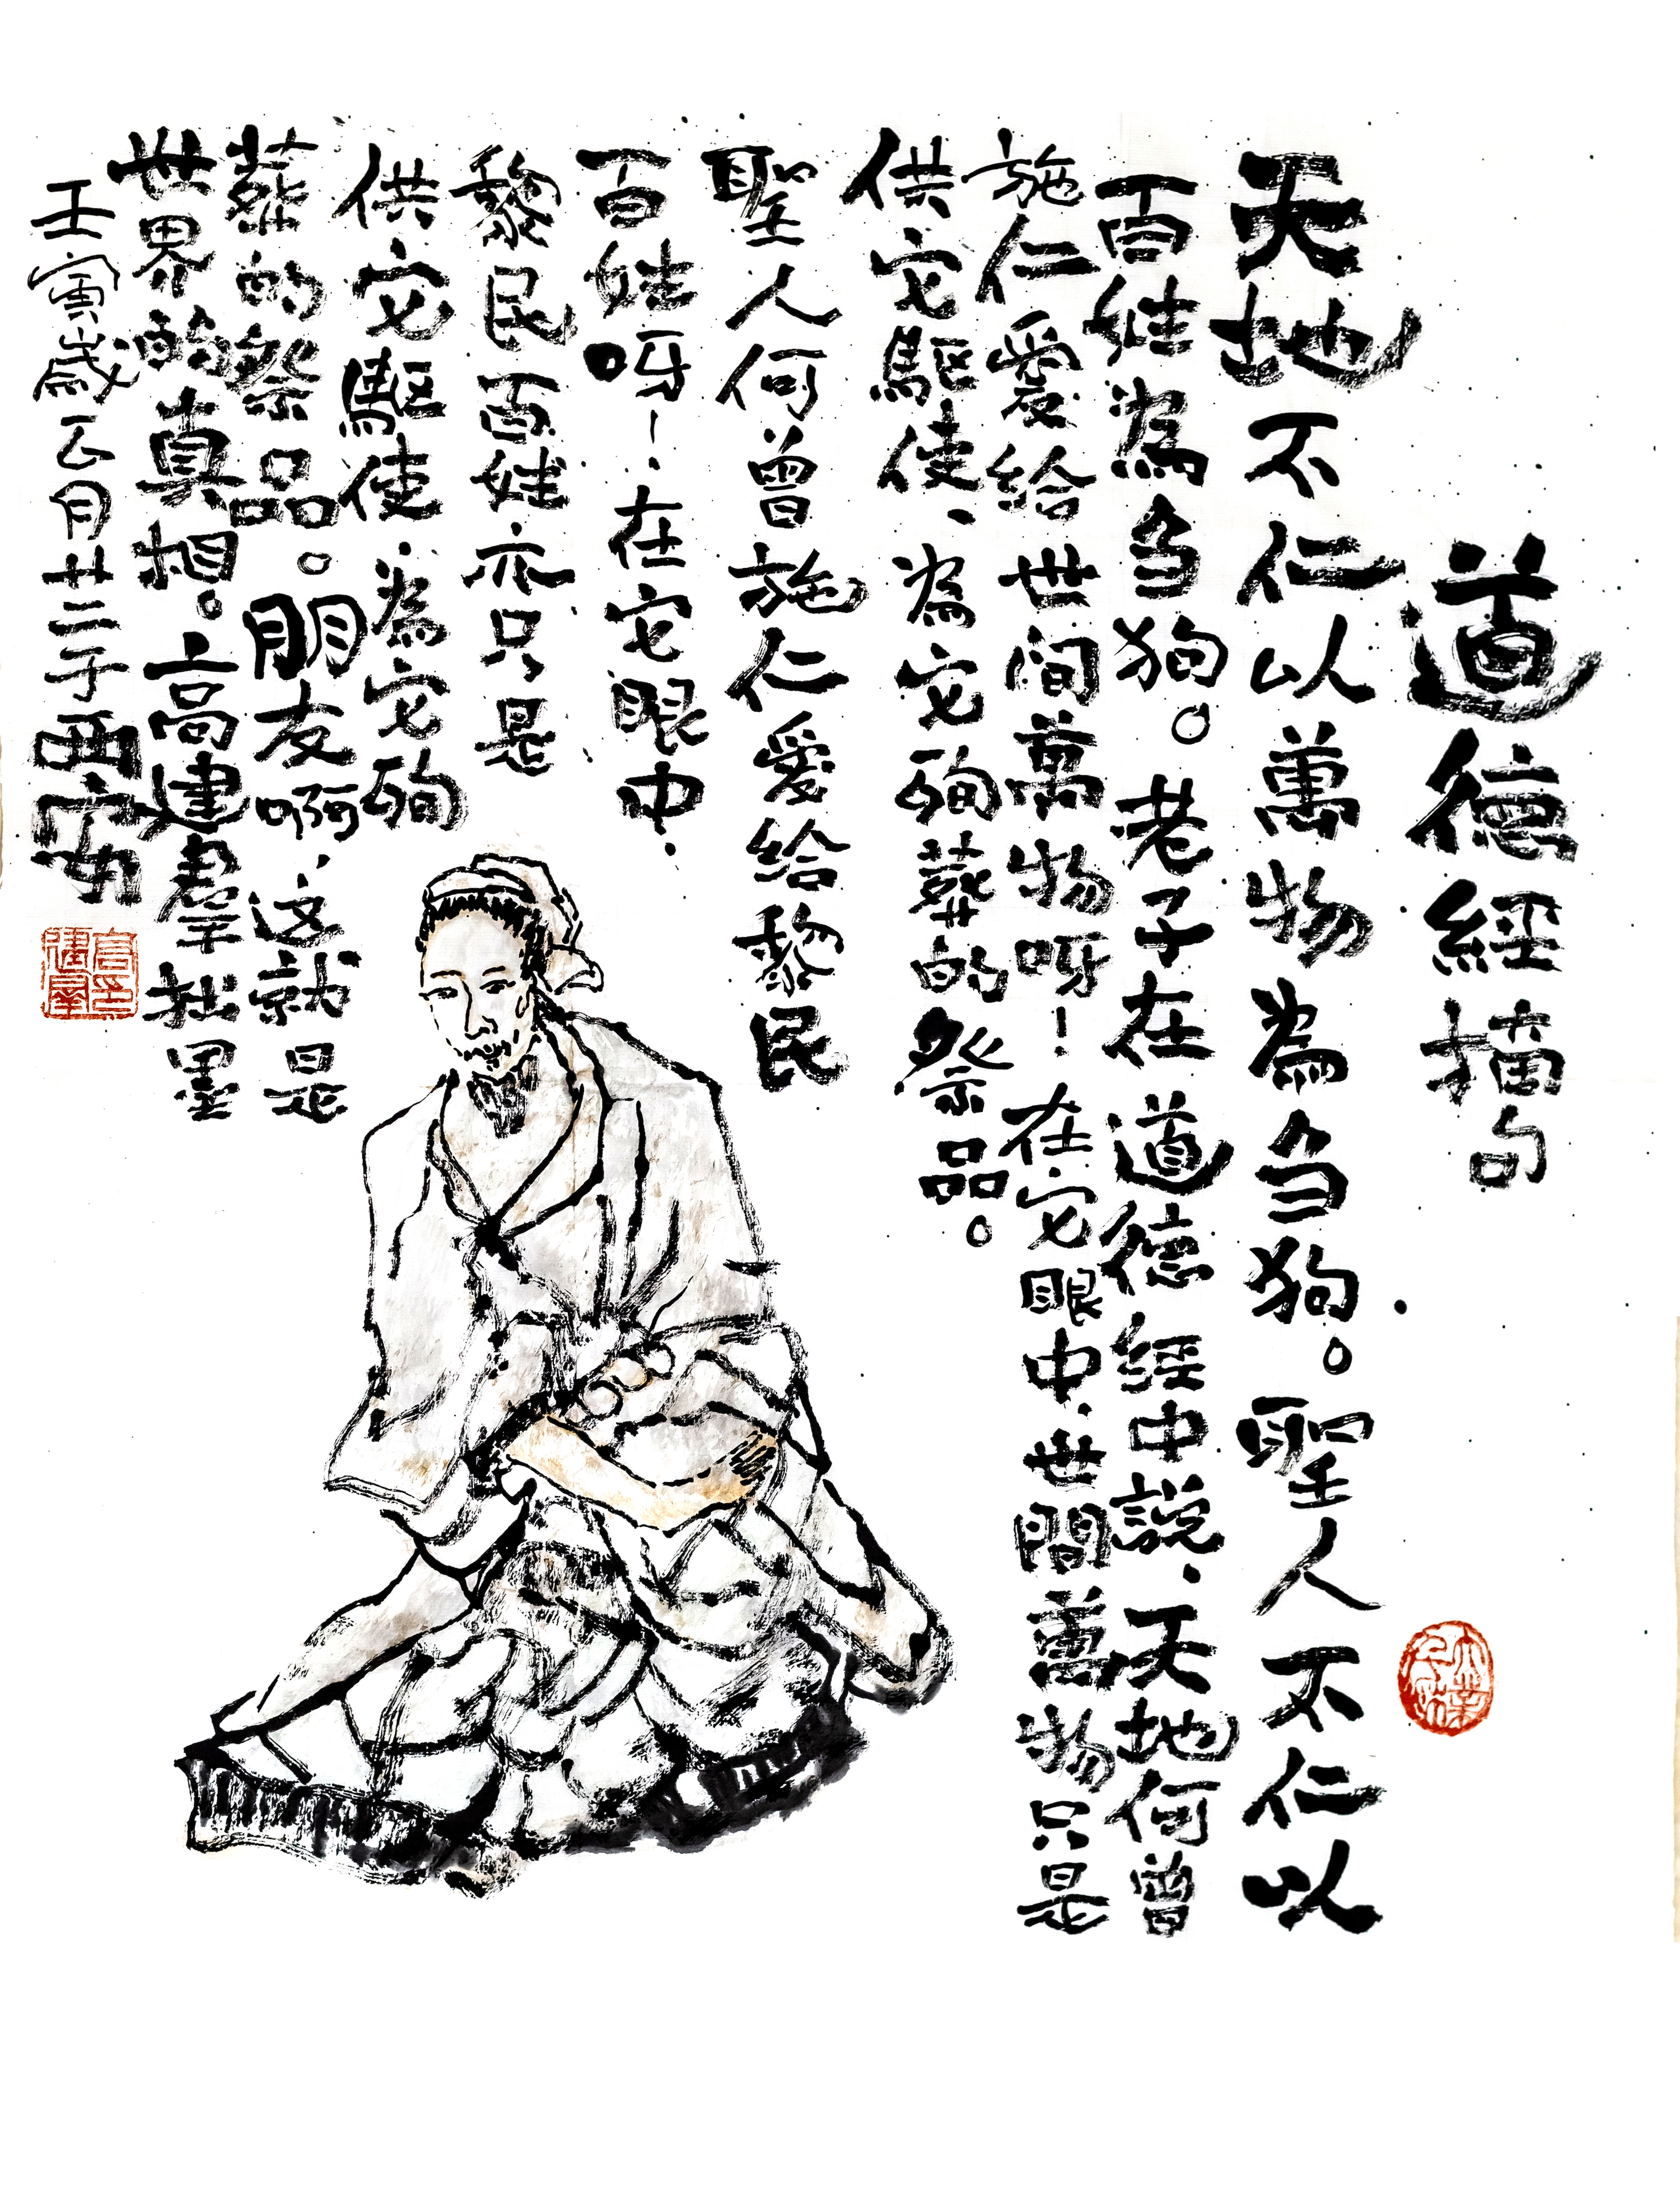 道德經摘句
天地不仁以萬物為刍狗。聖人不仁以
百姓為刍狗。老子在道德經中説、天地何曾
施仁愛給世间萬物呀！在它眼中、世間萬物只是
供它驅使、為它殉葬的祭品。
聖人何曾施仁愛給黎民
百姓呀！在它眼中、
黎民百姓亦只是
供它驅使、為它殉
葬的祭品。朋友啊、这就是
世界的真相。高建羣拙墨
壬寅歲正月廿二于西安